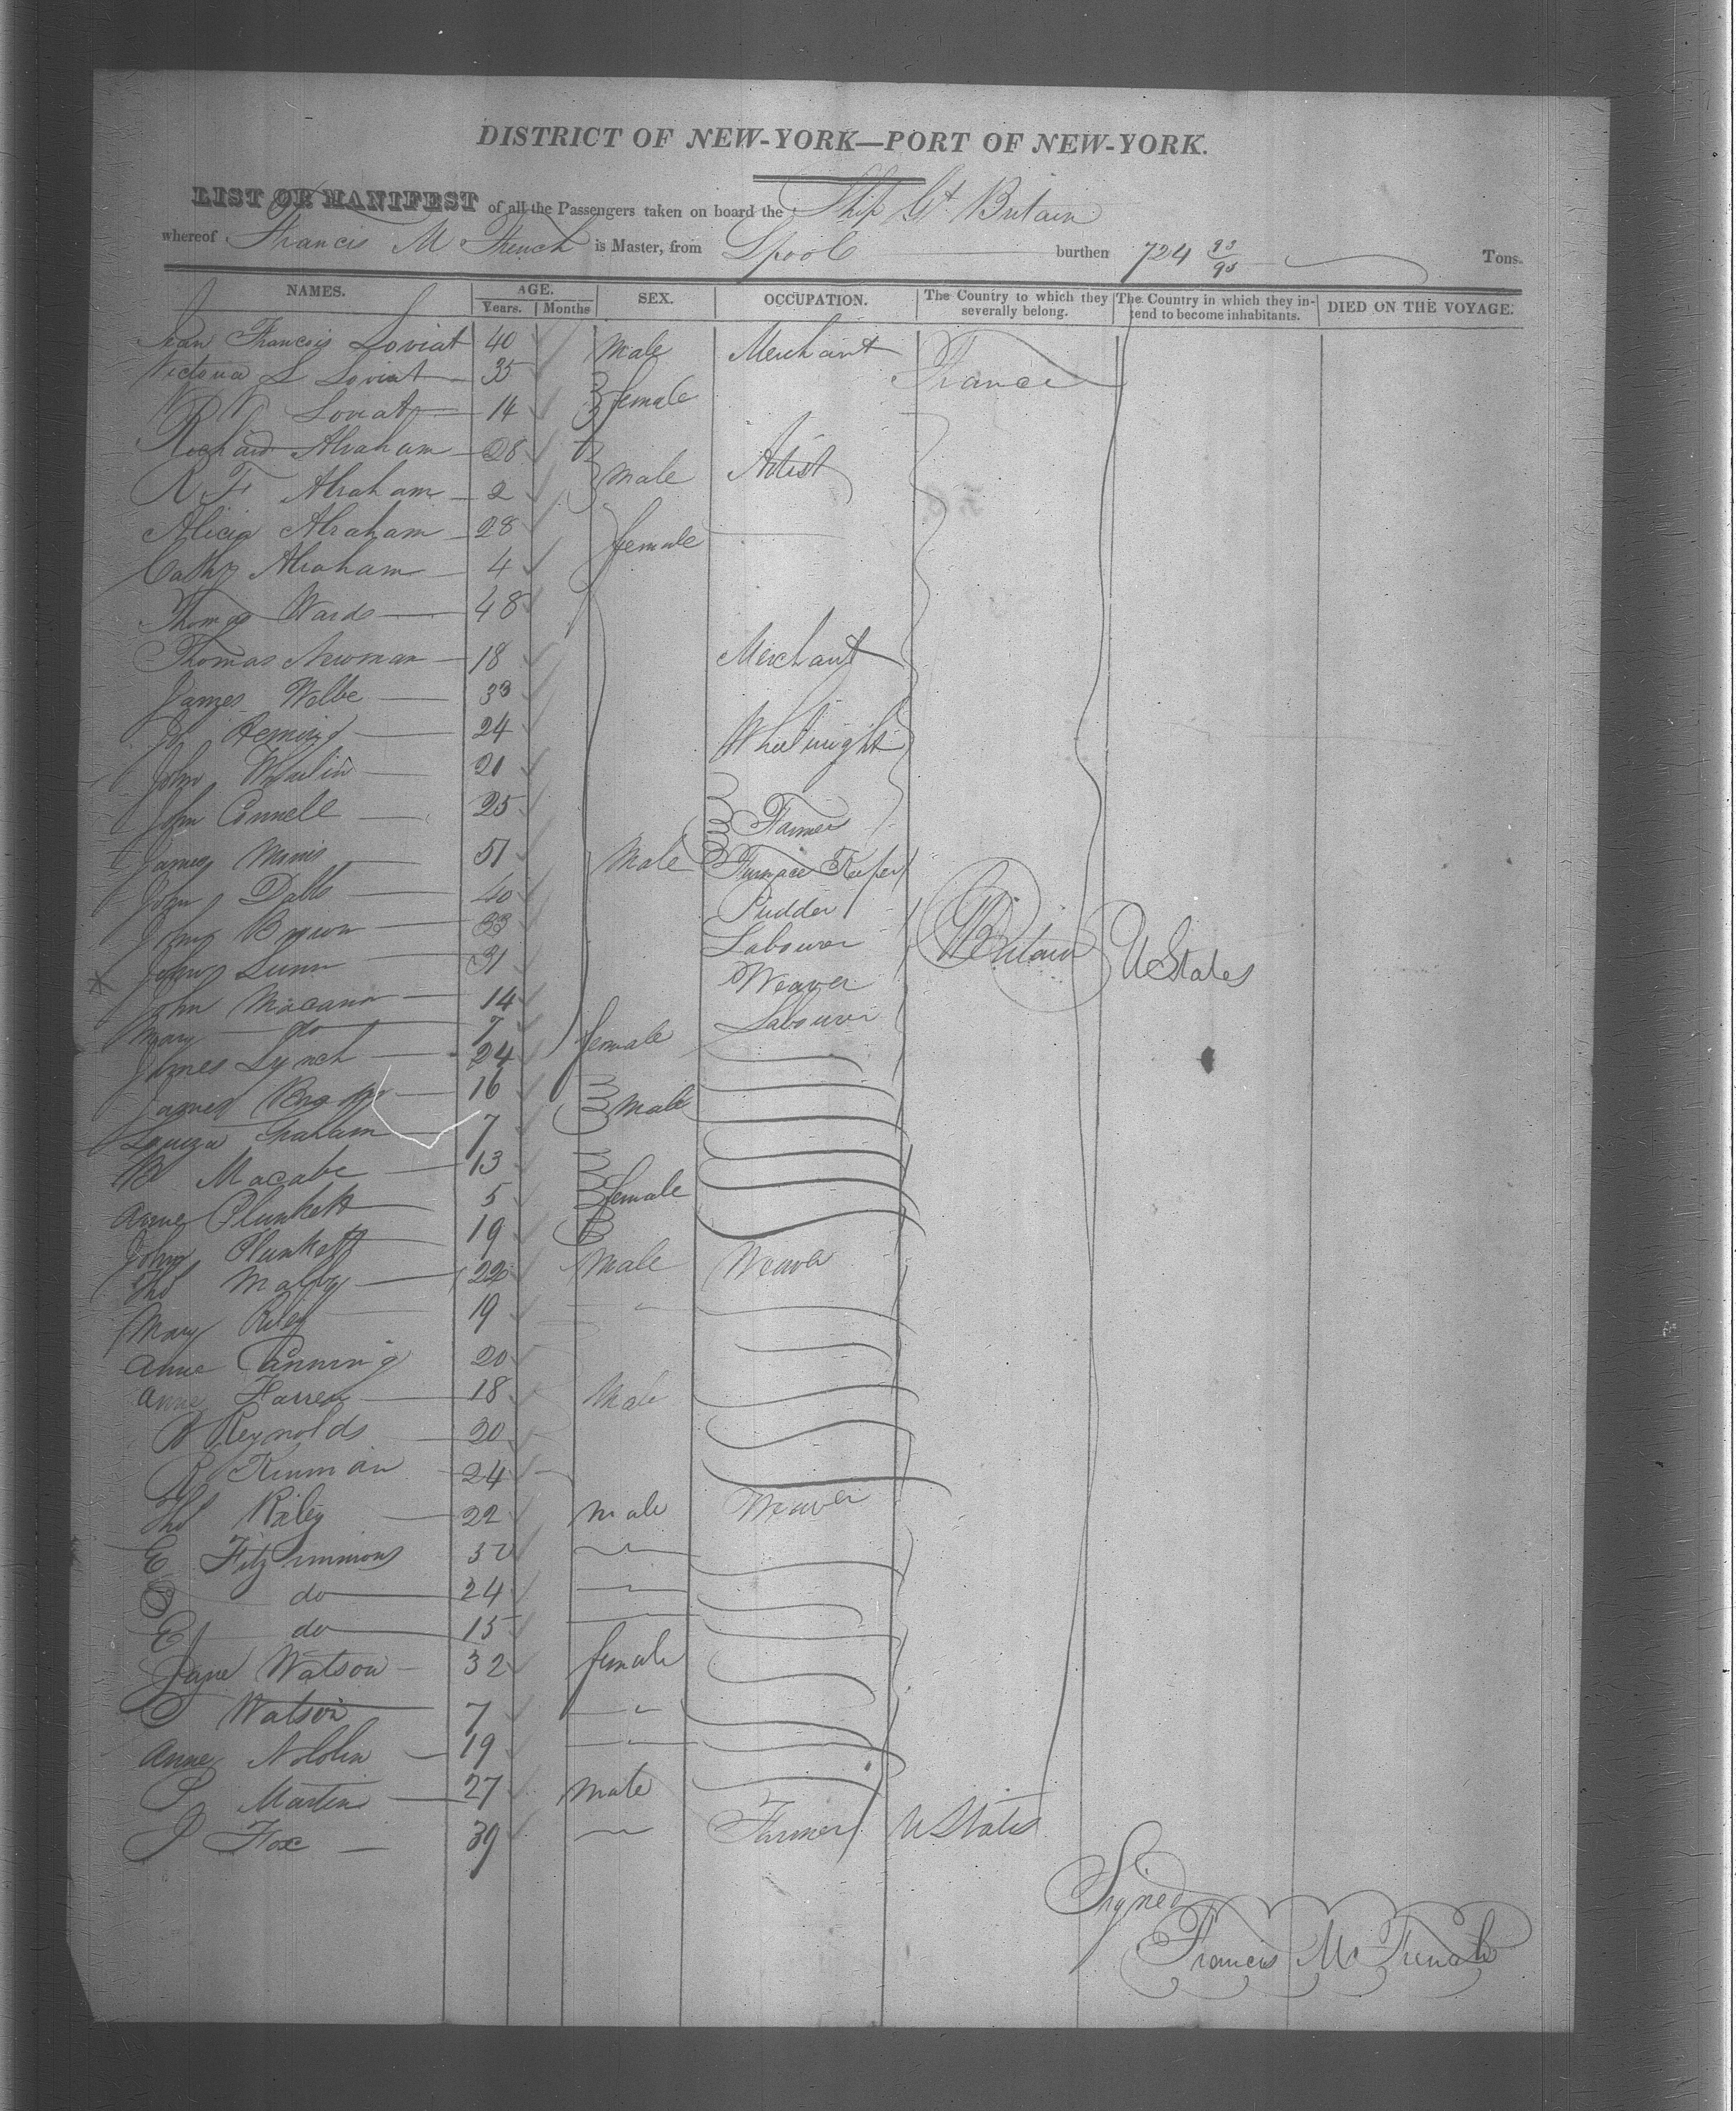 DISTRICT OF NEW-YORK—PORT OF NEW-YORK.
LIST OR MANIFEST of all the Passengers taken on board the Ship Gt Britain
whereof Francis M French is Master, from Lpool burthen 724 93/95 Tons.
NAMES. AGE. Years. Months SEX. OCCUPATION. The Country to which they severally belong. The Country in which they intend to become inhabitants. DIED ON THE VOYAGE.
Jean Francois Loviat 40 Male Merchant France
Victoria L Loviat 35 female
Loviat 14
Richard Abraham 28 male Artist
R F Abraham 2
Alicia Abraham 28 female
Cathy Abraham 4
Thomas Wards 48
Thomas Newman 18 Merchant
James Welbe 33
24 Wheelwright
John 21
John Connell 25 Farmer
James Morris 51 Male Furnace Keeper
John Dabbs 40 Pudder
John Brown 33 Labourer
John Lunn 31 Weaver Gt Britain U States
John Macann 14 Labourer
Mary do 7 female
James Lynch 24
James 16 male
Louiza Graham 7
Macabe 13
Anne Plunkett 5 female
John Plunkett 19
Thos Malby 22 male Weaver
Mary Riley 19
Anne Canning 20
Anne Farrely 18 Male
Reynolds 20
Kinman 24
Thos Riley 22 male Weaver
E Fitzsimmons 30
do 24
E do 15
Jane Watson 32 female
Watson 7
Anne Noblin 19
Martin 27 male
J Fox 39 Farmer U States
Signed
Francis M French